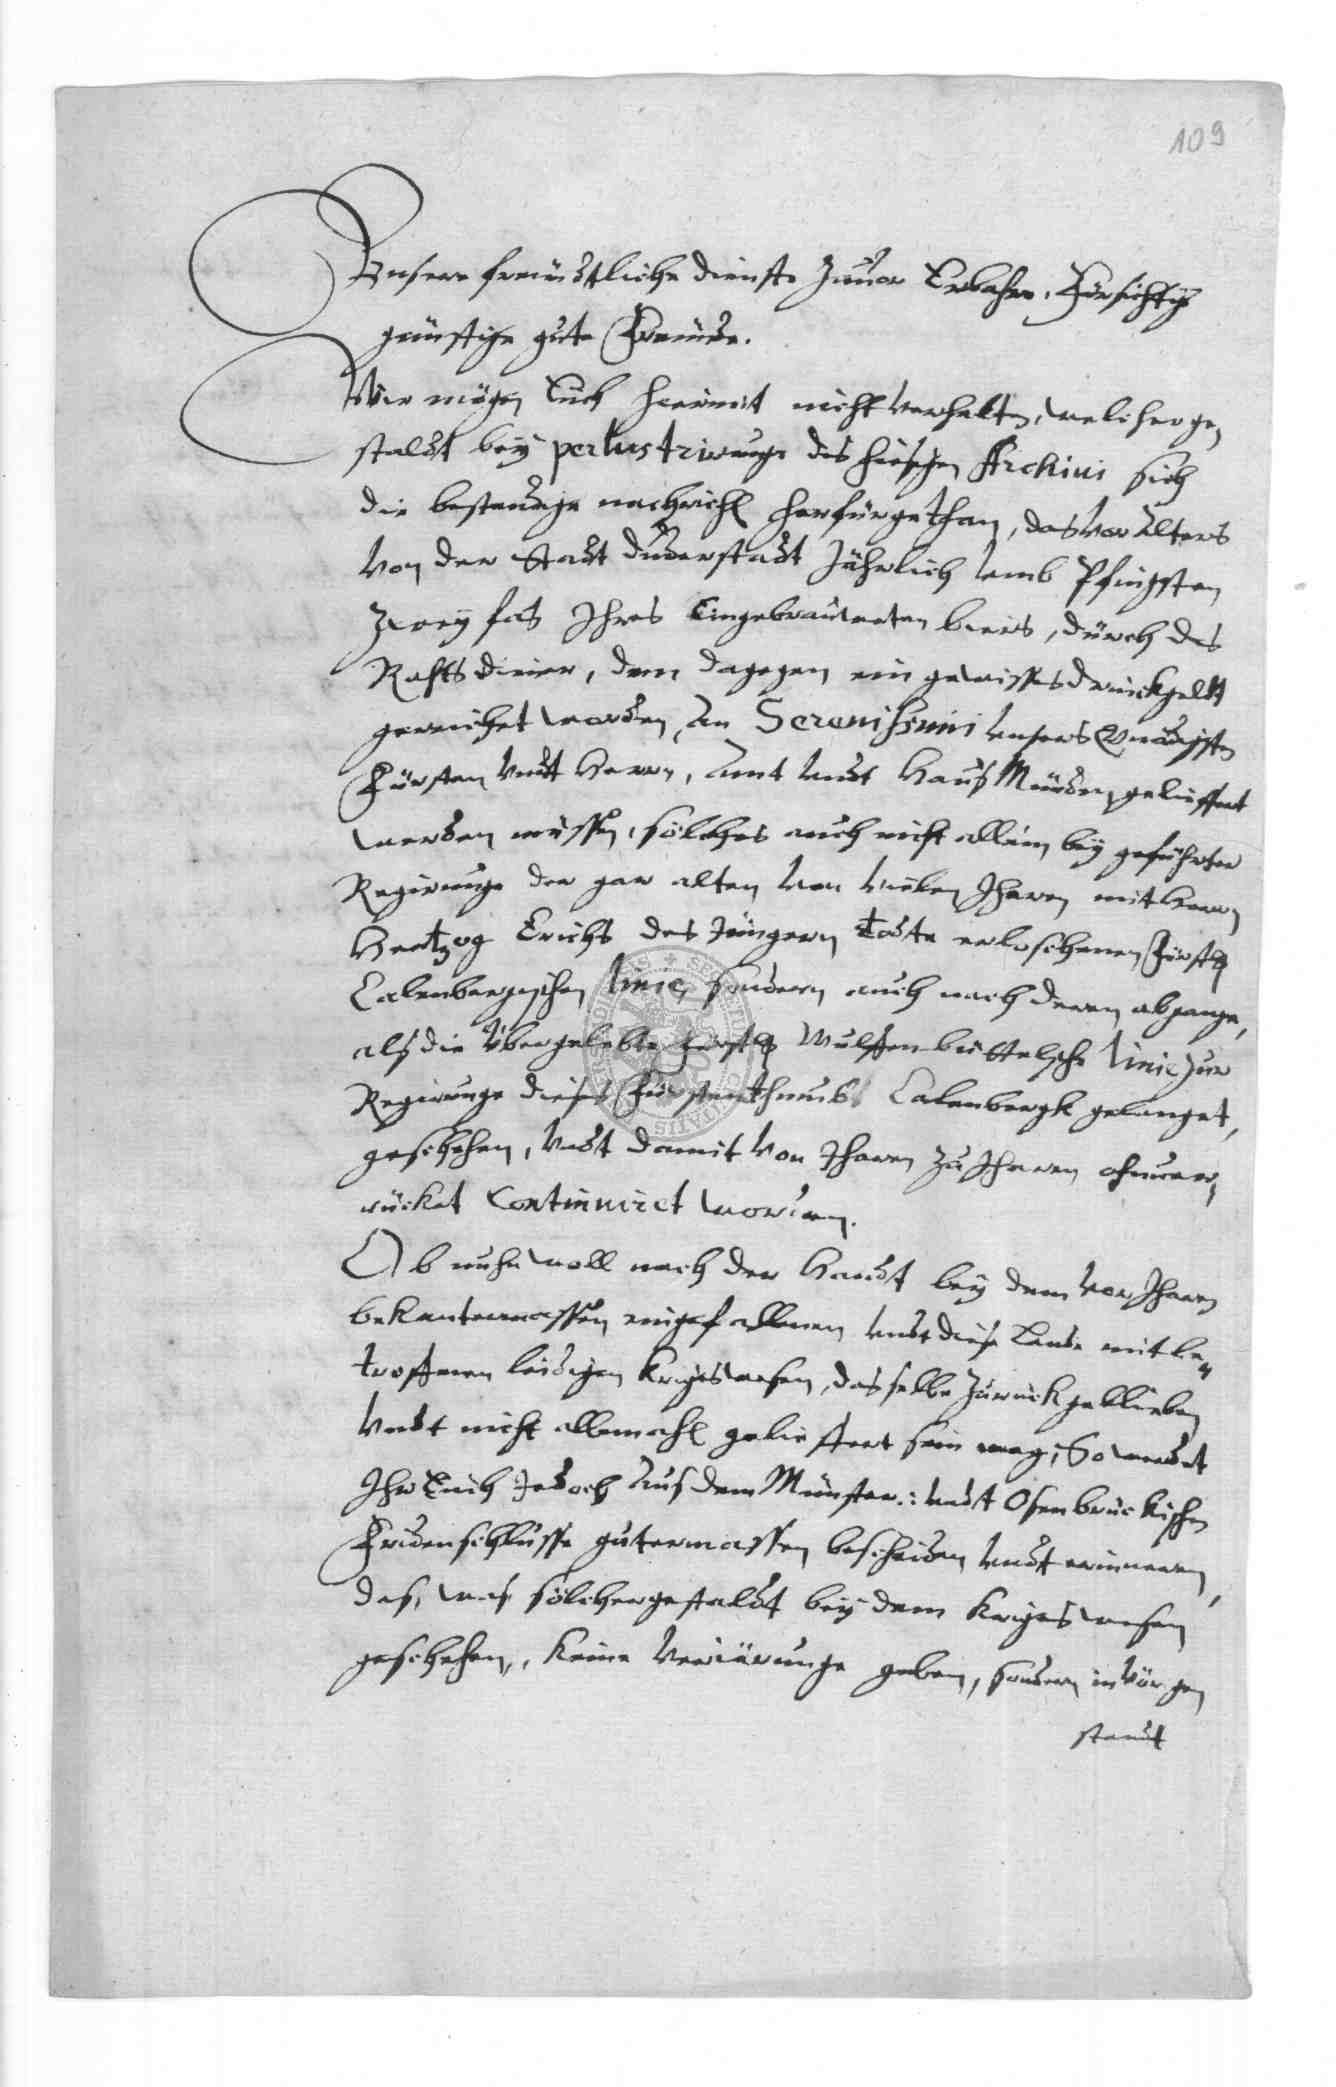 109
Unsere freündtliche dienste zuuor Erbahre, Fürsichtige
günstige gute Freünde.
Wir mögen Euch hiermit nicht verhalten, welcher ge,
staldt bey perlustrirunge des hiesigen Archiui sich
die bestendige nachricht herfürgethan, das vor Alters
von der Stadt Duderstadt Jährlich umb Pfingsten
zwey fas Ihres Eingebraueten biers, durch des
Rahts diener, dem dagegen ein gewisses drinckgeldt
gereichet worden, An Serenissimi unsers Gnädigsten
Fürsten undt Herrn, Amt undt Hauß Münden geliffert
werden müssen, solches auch nicht allein bey geführter
Regirunge der gar alten vor vielen Jharen mit Herrn
Hertzog Erichs des Jüngern Todte erloschenen Fürstl.
Calenbergischen linie, sondern auch nach deren abgange,
als die Übergelebte Fürstl. Wulffenbüttelsche linie zur
Regirunge dieses Fürstenthumbs Calenbergk gelanget,
geschehen, undt damit von Jharen zu Jharen ohnuer,
rücket Continuiret worden.
Ob nuhn woll nach der Handt bey dem vor Jharen
bekantermassen eingefallenen undt diese Lande mit be„
troffenen leidigen Krigswesen, dasselbe zurück geblieben
undt nicht allemahl geliffert sein mag; So werdet
Ihr Euch Jedoch Aus dem Münster: undt Osenbrückischen
Fridenschlusse gutermassen bescheiden undt erinnern,
das, was solchergestaldt bey dem Krigswesen
geschehen, keine Verjärunge geben, sondern in Vörgen
standt